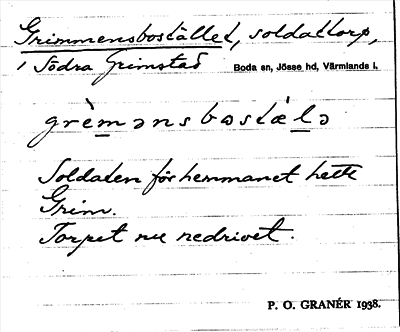 Grimmensbostället, soldattorp,
i Södra Grimstad Boda sn, Jösse hd, Värmlands l.
grèmənsbəstálə
Soldaten för hemmanet hette
Grim.
Torpet nu nedrivet.
P. O. GRANÉR 1938.